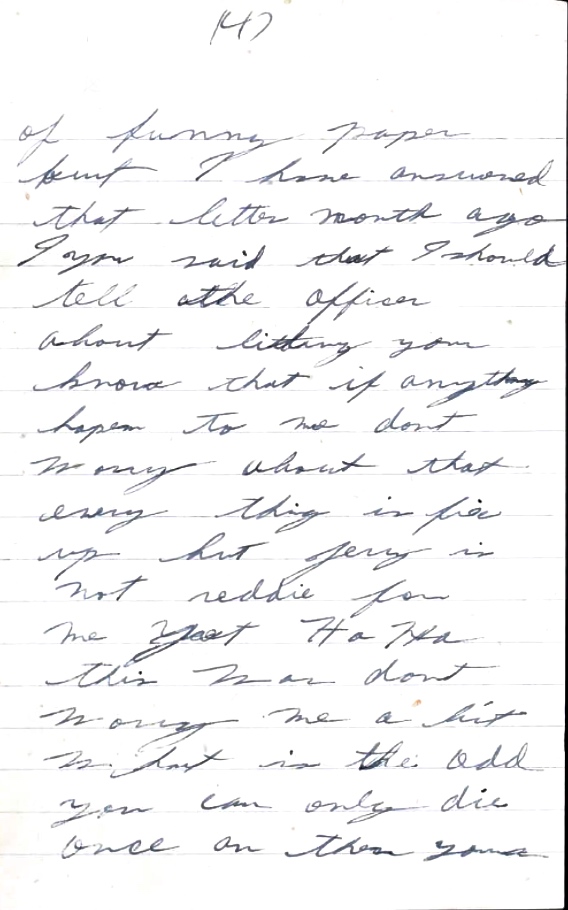 (4)
of funny paper
but I have answered
that letter month ago
I you said that I should
tell the officer
about litting you
know that if anything
hapen to me dont
worry about that
every thig is fix
up but Jerry is
not reddie for
me yeat Ha Ha
this war dont
worry me a bit
what is the odd
you can only die
once an then your